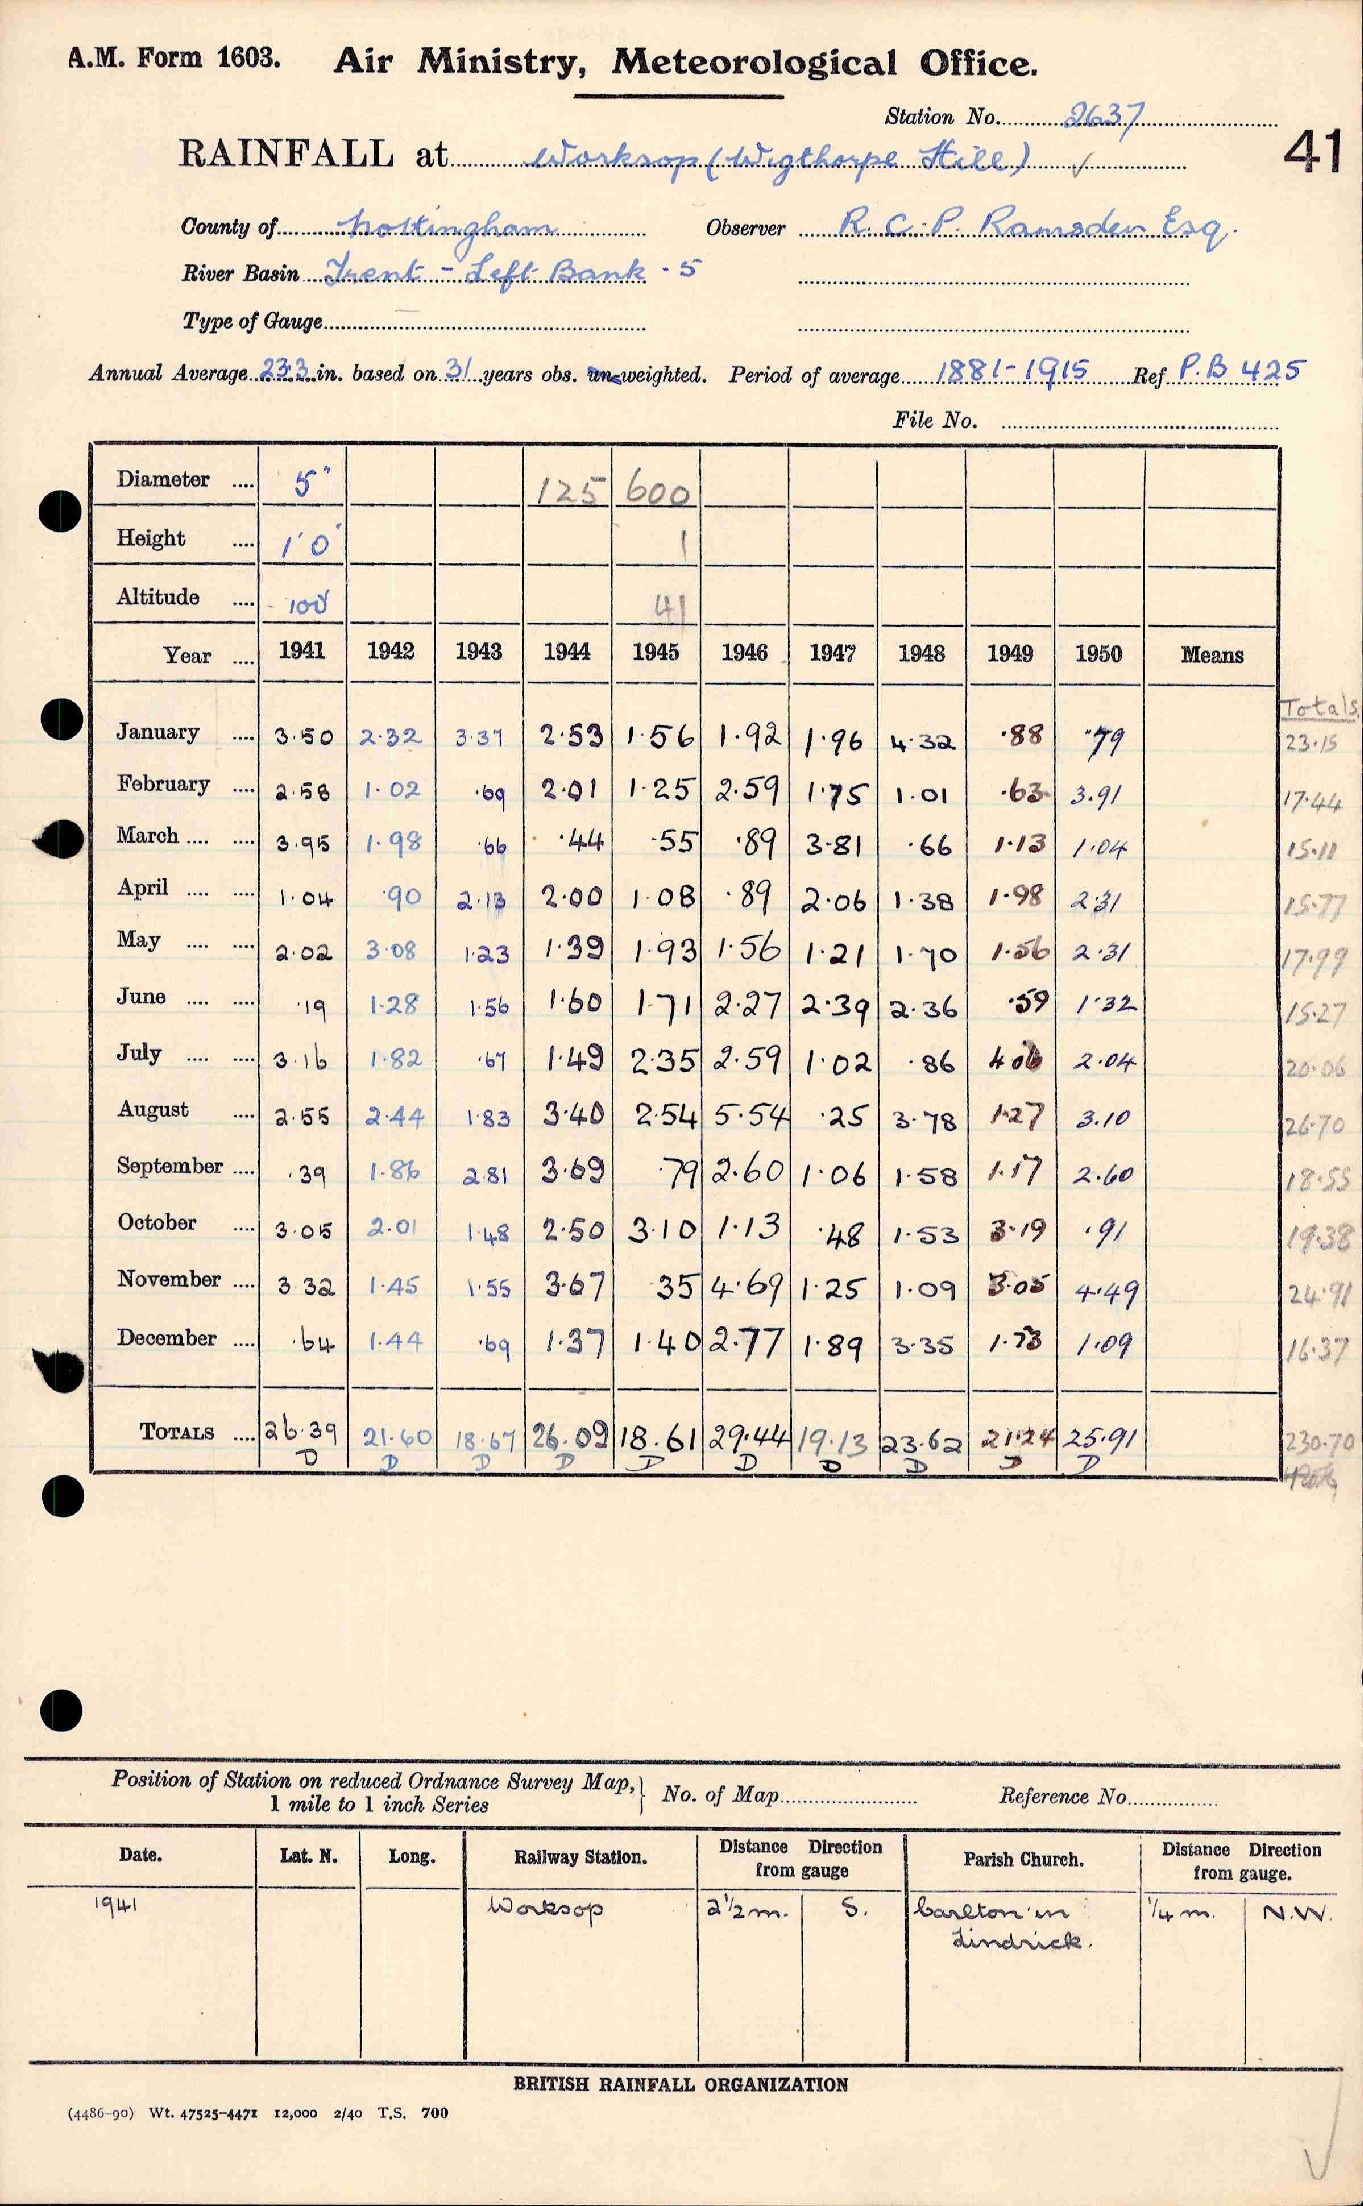 A.M. Form 1603. Air Ministry, Meteorological Office.
Station No. 2637
RAINFALL at Worksop (Wigthorpe Hill) ✓ 41
County of Nottingham Observer R. C. P. Ramsden Esq.
River Basin Trent - Left Bank - 5
Type of Gauge
Annual Average 23.3 in. based on 31 years obs. un-weighted. Period of average 1881-1915 Ref P.B 425
File No.
Diameter .... 5" 125 600
Height .... 1' 0" 1
Altitude .... 100' 41
Year .... 1941 1942 1943 1944 1945 1946 1947 1948 1949 1950 Means
Totals
January .... 3.50 2.32 3.37 2.53 1.56 1.92 1.96 4.32 .88 .79 23.15
February .... 2.58 1.02 .69 2.01 1.25 2.59 1.75 1.01 .63 3.91 17.44
March .... .... 3.95 1.98 .66 .44 .55 .89 3.81 .66 1.13 1.04 15.11
April .... .... 1.04 .90 2.13 2.00 1.08 .89 2.06 1.38 1.98 2.31 15.77
May .... .... 2.02 3.08 1.23 1.39 1.93 1.56 1.21 1.70 1.56 2.31 17.99
June .... .... .19 1.28 1.56 1.60 1.71 2.27 2.39 2.36 .59 1.32 15.27
July .... .... 3.16 1.82 .67 1.49 2.35 2.59 1.02 .86 4.06 2.04 20.06
August .... 2.55 2.44 1.83 3.40 2.54 5.54 .25 3.78 1.27 3.10 26.70
September .... .39 1.86 2.81 3.69 .79 2.60 1.06 1.58 1.17 2.60 18.55
October .... 3.05 2.01 1.48 2.50 3.10 1.13 .48 1.53 3.19 .91 19.38
November .... 3.32 1.45 1.55 3.67 35 4.69 1.25 1.09 3.05 4.49 24.91
December .... .64 1.44 .69 1.37 1.40 2.77 1.89 3.35 1.73 1.09 16.37
TOTALS .... 26.39 21.60 18.67 26.09 18.61 29.44 19.13 23.62 21.24 25.91 230.70
D D D D D D D D D D
Position of Station on reduced Ordnance Survey Map, 1 mile to 1 inch Series } No. of Map Reference No.
Date. Lat. N. Long. Railway Station. Distance Direction from gauge Parish Church. Distance Direction from gauge.
1941 Worksop 2½m. S. Carlton in ¼ m. N.W.
Lindrick.
BRITISH RAINFALL ORGANIZATION
(4486-90) Wt. 47525-4471 12,000 2/40 T.S. 700